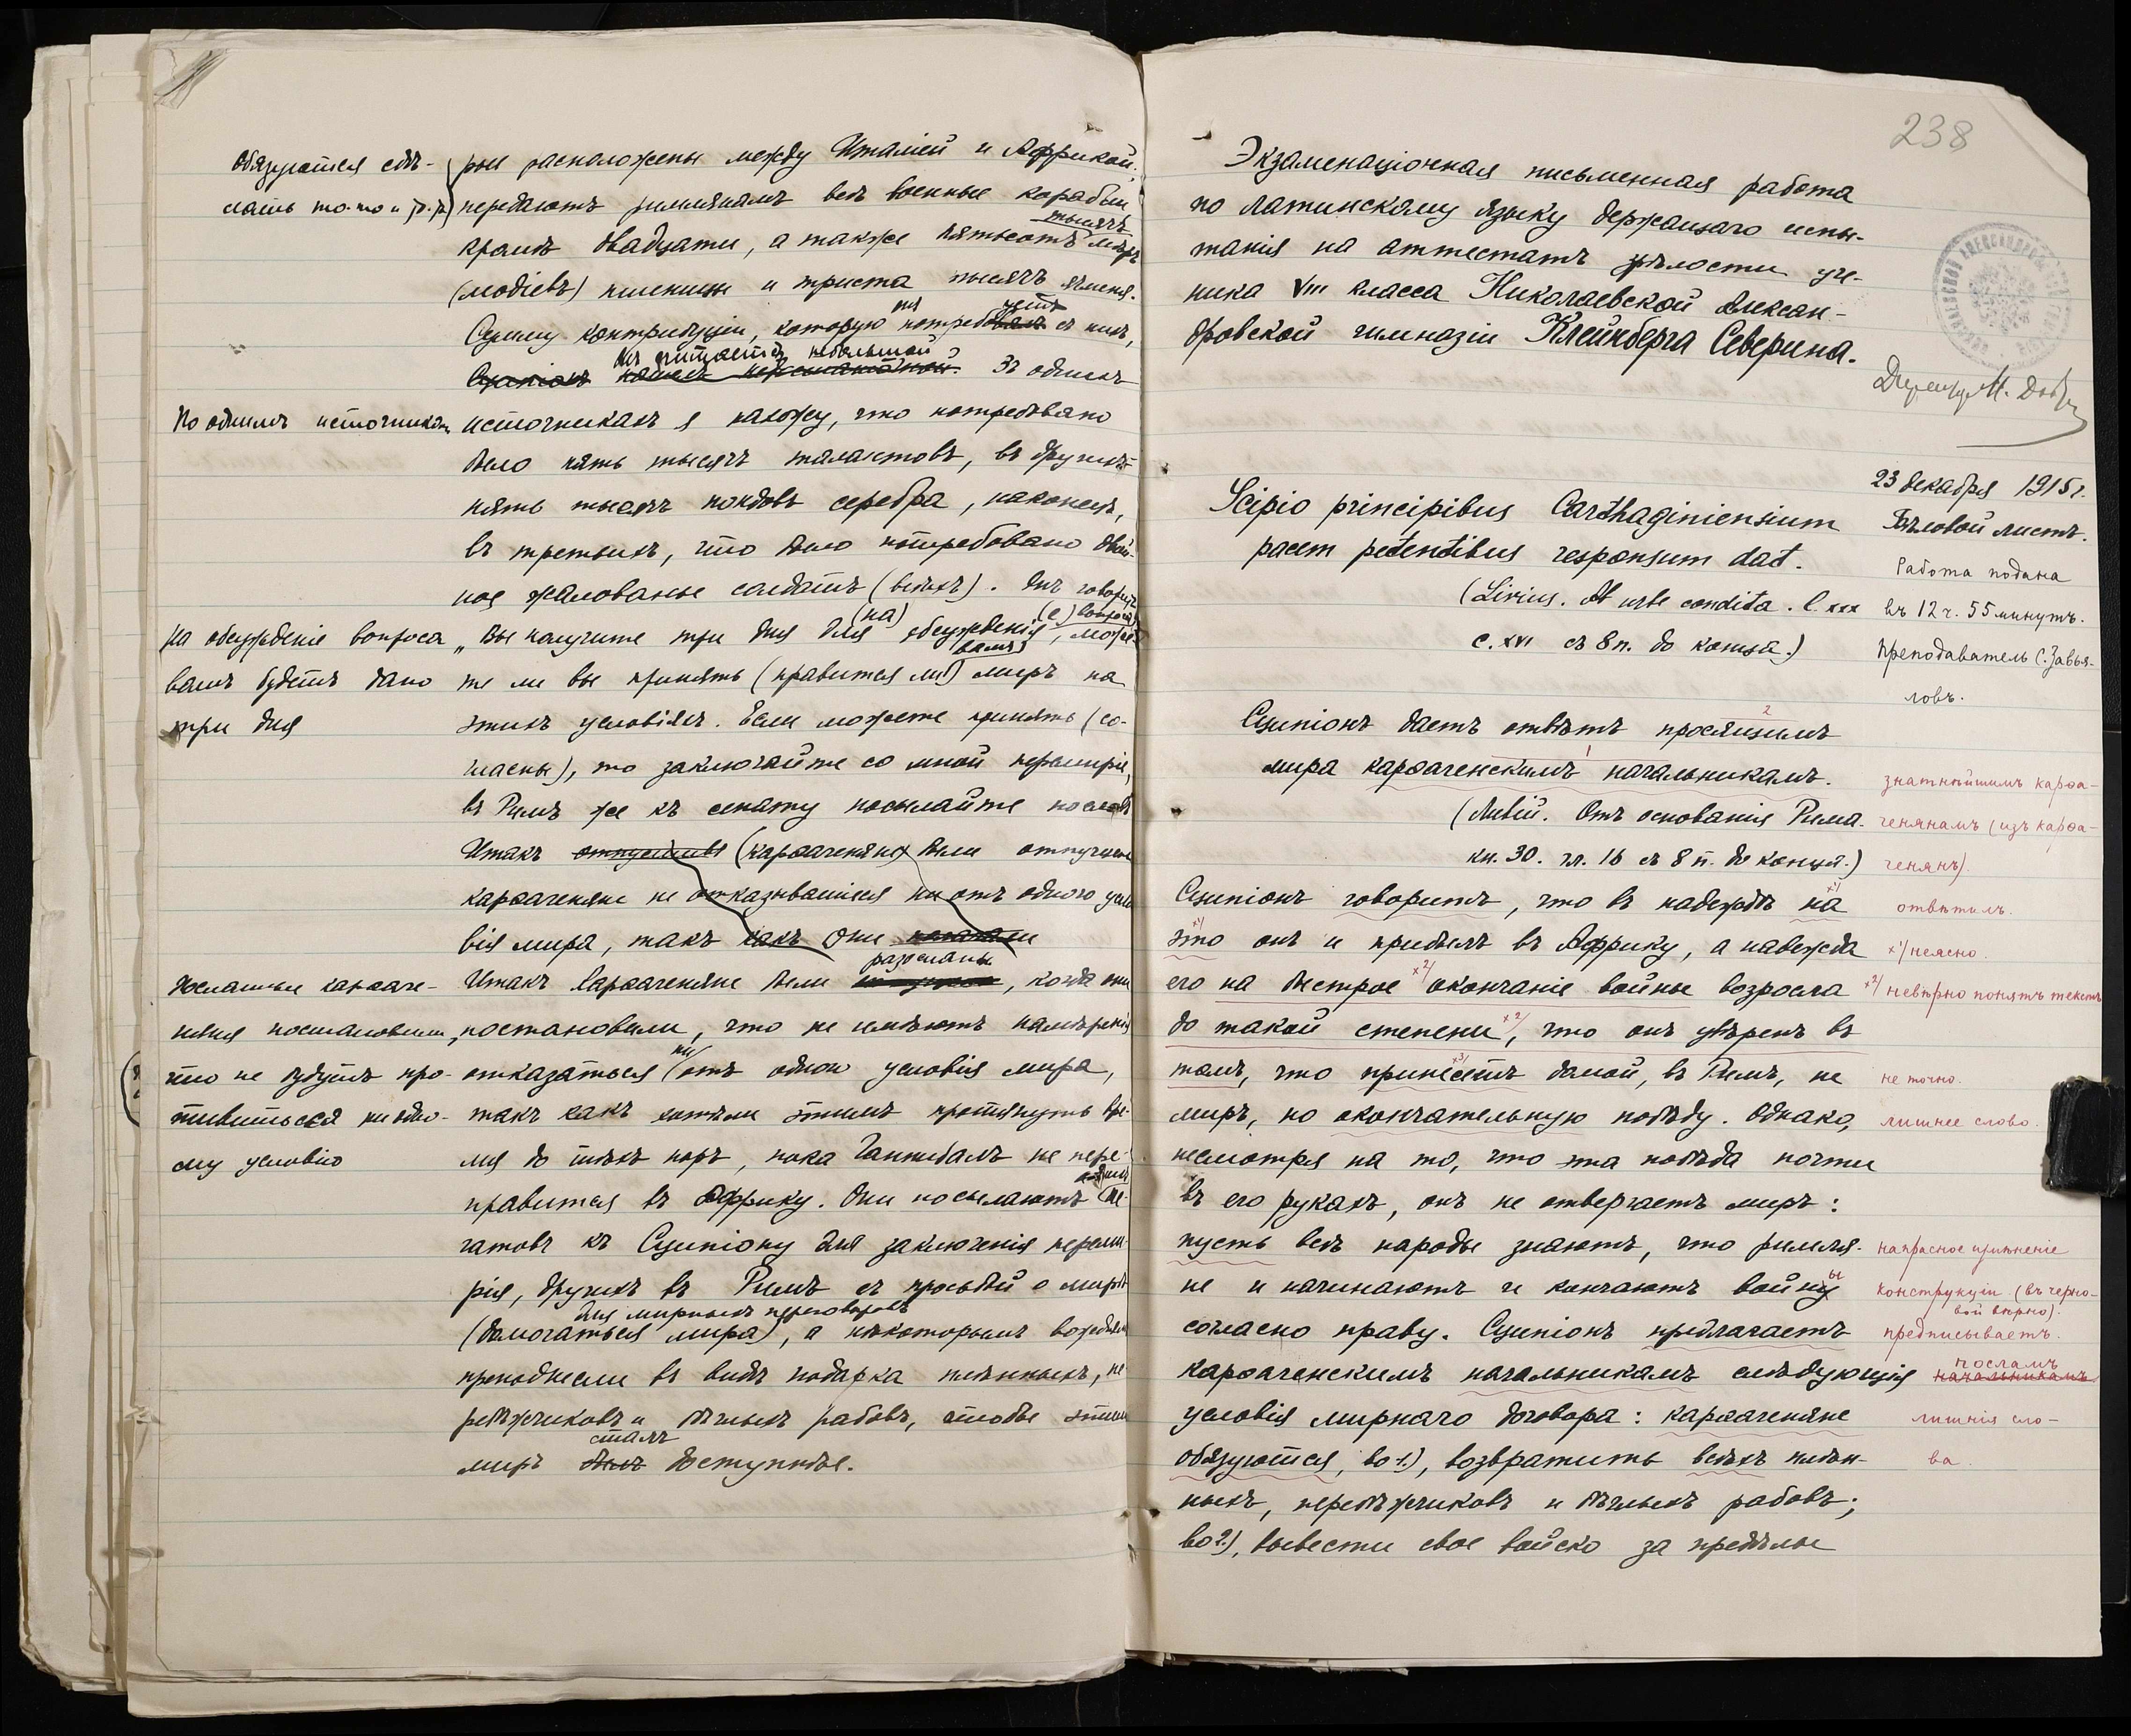 обязуются сдѣ-
лать то-то и т.д.)
рыя расположены между Италіей и Африкой,
передаютъ римлянамъ всѣ военные корабли
тысячъ
кромѣ двадцати, а также пятьсотъ мѣръ
(модіевъ) пшеницы и триста тысячъ ячменя.
Сумму контрибуціи, которую потребовалъ съ нихъ,
небольшой
Въ однихъ
По однимъ источникамъ
источникахъ я нахожу, что потребовано
было пять тысячъ талантовъ, въ другихъ -
пять тысячъ пондовъ серебра, наконецъ,
въ третьихъ, что было потребовано двой-
ное жалованье солдатъ (всѣхъ). Онъ говоритъ
(на) (е) вопроса)
На обсужденіе вопроса
вамъ будетъ дано
три дня
„Вы получите три дня для обсужденія, може-
вамъ)
те ли вы принять (нравится ли) миръ на
этихъ условіяхъ. Если можете принять (со-
гласны), то заключайте со мной перемиріе,
въ Римъ же къ сенату посылайте пословъ
Итакъ отпустивъ (карѳагеняне) были отпущены
карѳагеняне не отказывавшіеся ни отъ одного усло
вія мира, такъ какъ они
разосланы
Итакъ Карѳагеняне были , когда они
постановили, что не имѣютъ намѣренія
ни
отказаться отъ одного условія мира,
что не будутъ про-
тивиться ни одно-
му условію
такъ какъ хотѣли этимъ протянуть вре-
мя до тѣхъ поръ, пока Ганнибалъ не пере-
правится въ Африку. Они посылаютъ ле-
гатовъ къ Сципіону для заключенія переми-
рія, другихъ въ Римъ съ просьбой о мирѣ
для мирныхъ переговоровъ
(домогаться мира), а нѣкоторымъ вождямъ
преподнесли въ видѣ подарка плѣнныхъ, пе
ребѣжчиковъ и бѣглыхъ рабовъ, чтобы этимъ
сталъ
миръ былъ доступнѣе.
238
Экзаменаціонная письменная работа
по латинскому языку держащаго испы-
танія на аттестатъ зрѣлости уче-
ника VIII класса Николаевской Алексан-
дровской гимназіи Клейнберга Северина.
23 декабря 1915 г.
Бѣловой листъ.
Работа подана
въ 12 ч. 55 минутъ.
Преподаватель С. Завья-
ловъ.
Scipio principibus Carthaginiensium
pacem petentibus responsum dat.
(Livius. Ab urbe condita. l. XXX
c. XVI съ 8 п. до конца.)
2
Сципіонъ даетъ отвѣтъ просящимъ
1
мира карѳагенскимъ начальникамъ.
(Ливій. Отъ основанія Рима.
кн. 30. гл. 16 съ 8 п. до конца.)
знатнѣйшимъ карѳа-
генянамъ (изъ карѳа-
генянъ).
Сципіонъ говоритъ, что въ надеждѣ на
отвѣтилъ.
это онъ и прибылъ въ Африку, а надежда
x1/ неясно.
его на быстрое окончаніе войны возросла
x2/ невѣрно понятъ текстъ
до такой степени, что онъ увѣренъ въ
томъ, что принесетъ домой, въ Римъ, не
не точно.
миръ, но окончательную побѣду. Однако,
лишнее слово.
несмотря на то, что эта побѣда почти
въ его рукахъ, онъ не отвергаетъ миръ:
пусть всѣ народы знаютъ, что римля-
не и начинаютъ и кончаютъ войны
напрасное примѣненіе
конструкціи (въ черно-
вой вѣрно).
согласно праву. Сципіонъ предлагаетъ
предписываетъ.
карѳагенскимъ начальникамъ слѣдующія
посламъ
начальникамъ
условія мирнаго договора: карѳагеняне
обязуются, во 1), возвратить всѣхъ плѣн-
лишнія сло-
ва.
ныхъ, перебѣжчиковъ и бѣглыхъ рабовъ;
во 2), вывести свое войско за предѣлы